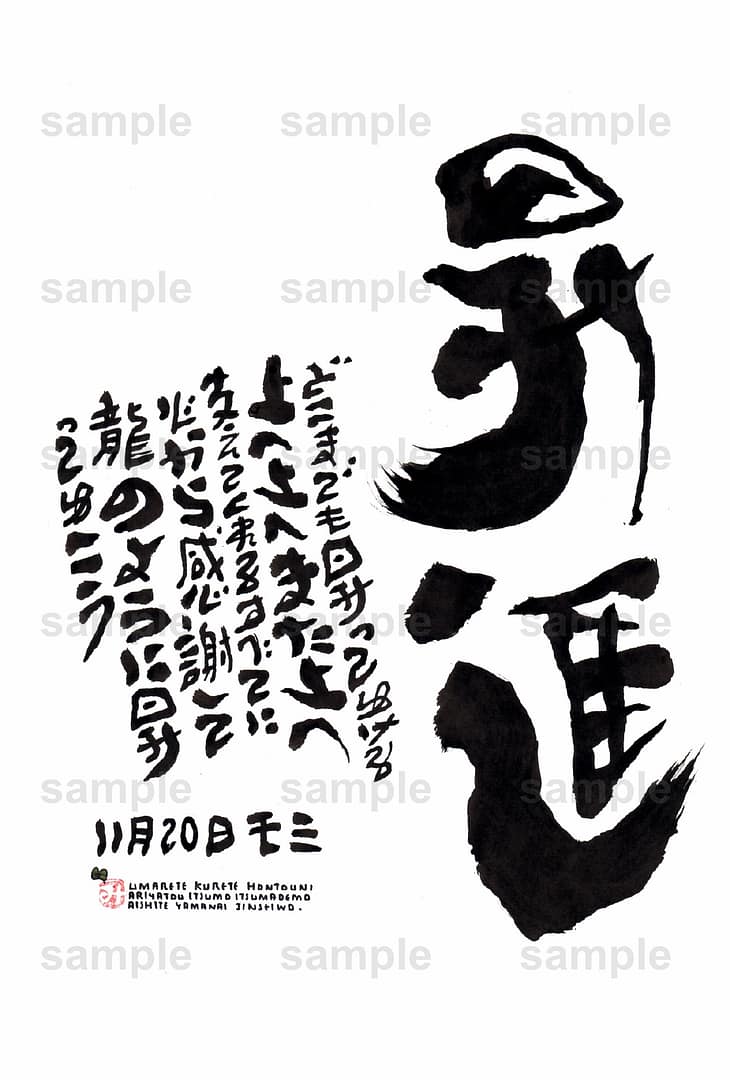 昇進
どこまでも昇ってゆける
上へ上へまた上へ
支えてくれるすべてに
心から感謝して
龍のように昇
ってゆこう
11月20日 モミ
UMARETE KURETE HONTOUNI
ARIGATOU ITSUMO ITSUMADEMO
AISHITE YAMANAI JINSEIWO.
sample sample sample
sample sample sample
sample sample sample
sample sample sample
sample sample sample
sample sample sample